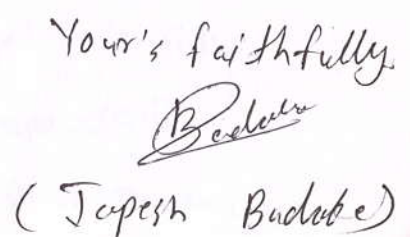 Your's faithfully
(Japesh Budake)